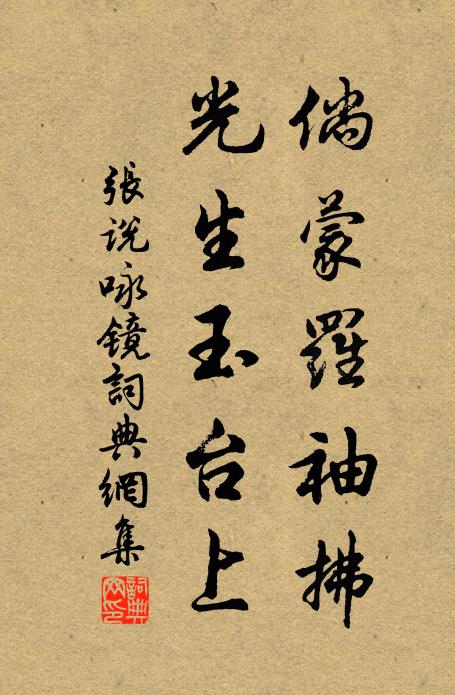 倘蒙羅袖拂
光生玉台上
張说咏镜詞典網集
詞典网印